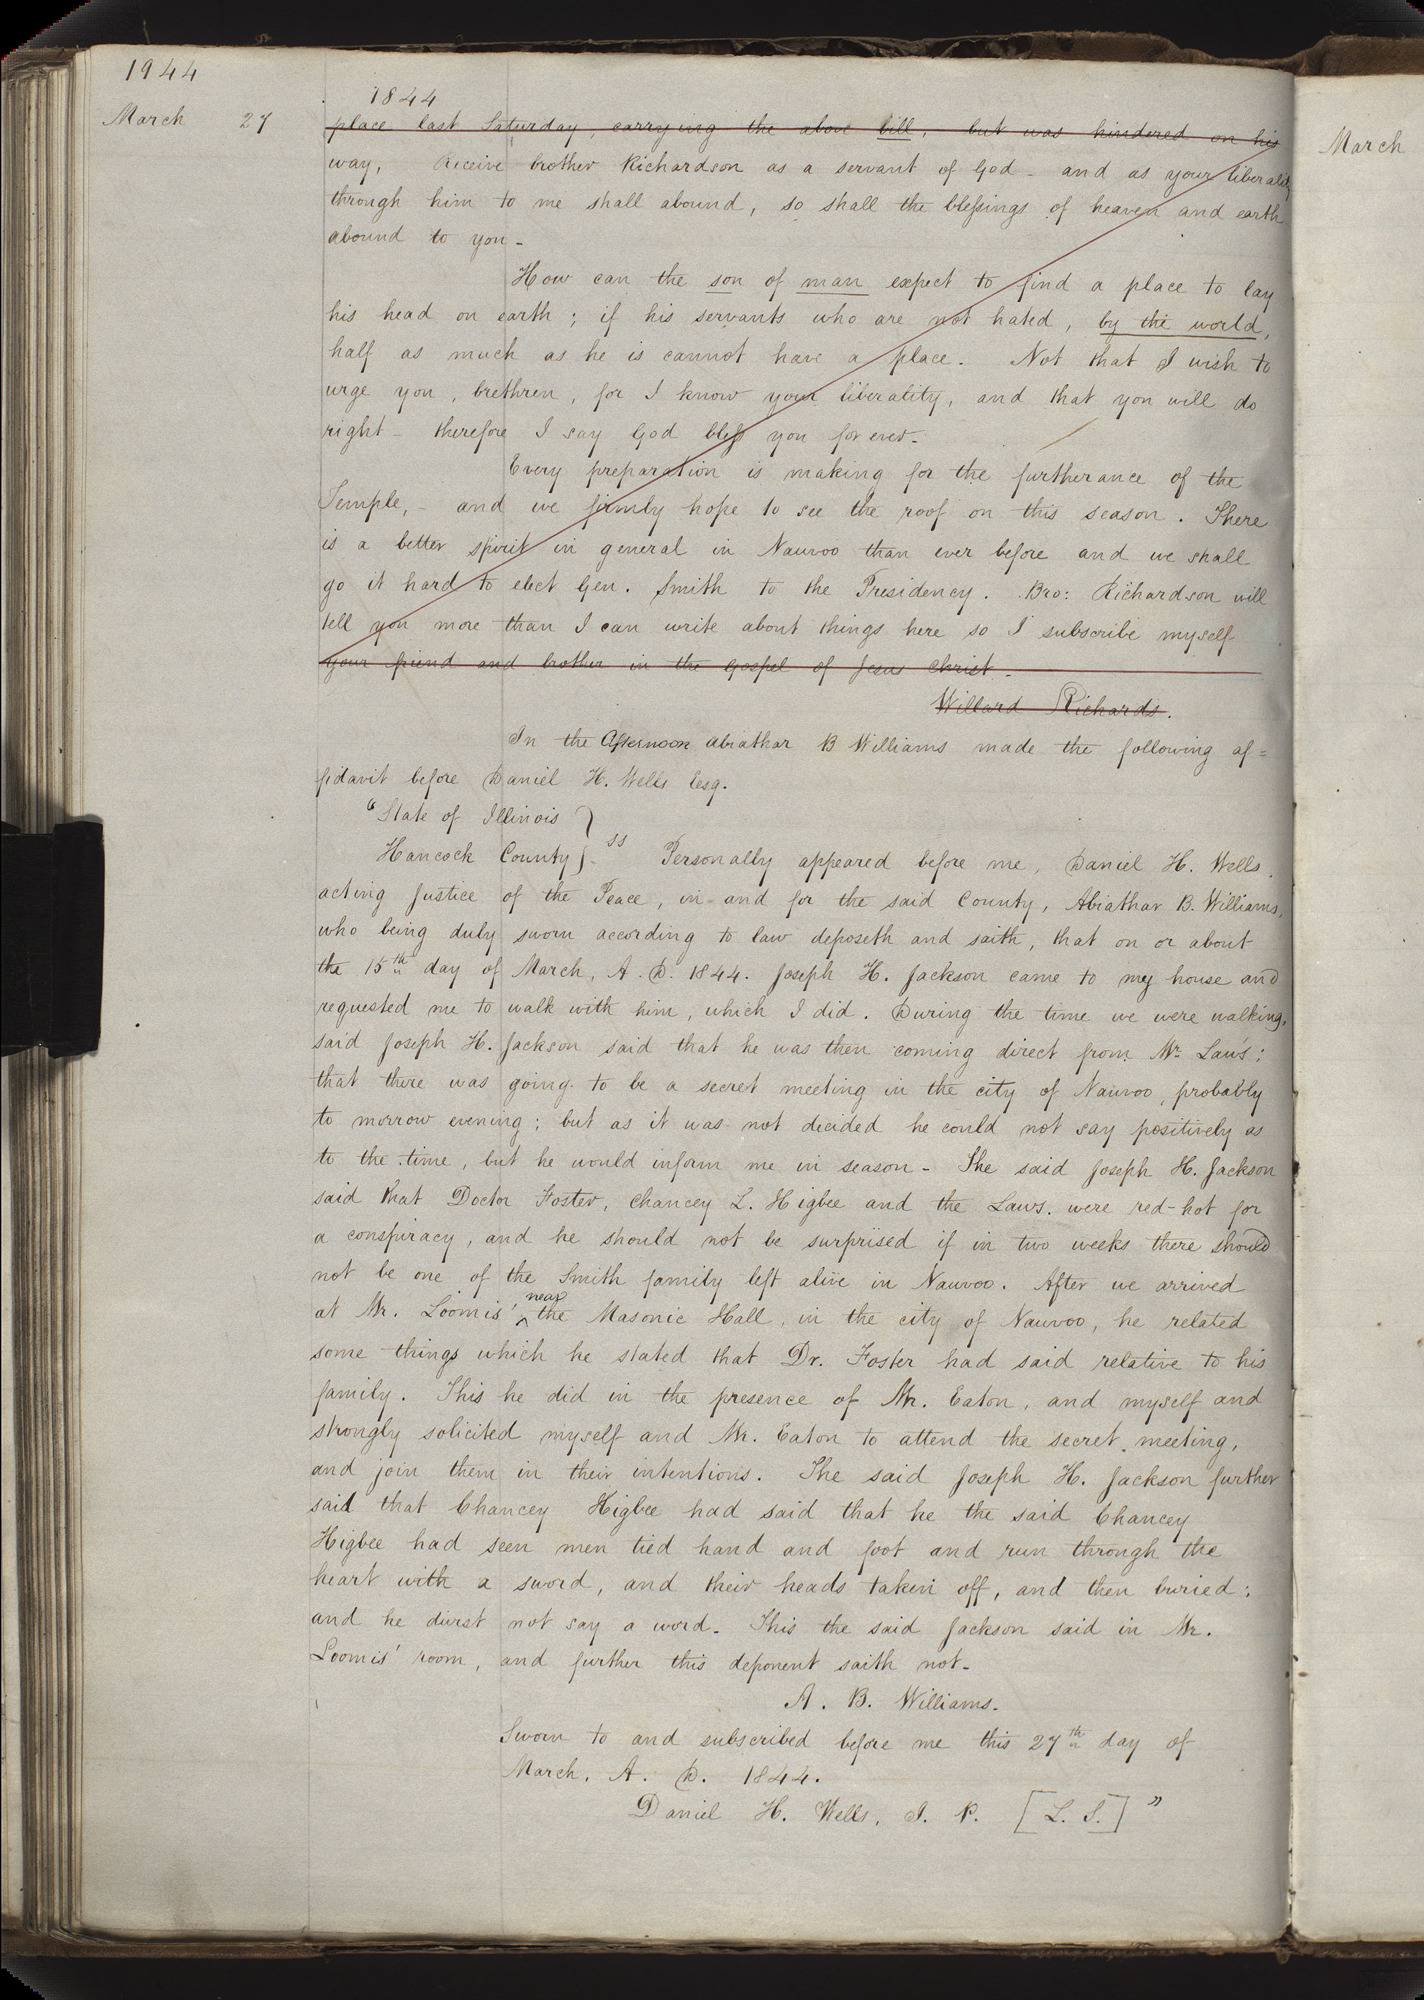 1944
1844
March 27
March
place last Saturday, carrying the above bill, but was hindered on his
way, Receive brother Richardson as a servant of God - and as your liberality
through him to me shall abound, so shall the blessings of heaven and earth
abound to you -
How can the son of man expect to find a place to lay
his head on earth; if his servants who are not hated, by the world,
half as much as he is cannot have a place. Not that I wish to
urge you, brethren, for I know your liberality, and that you will do
right - therefore I say God bless you forever.
Every preparation is making for the furtherance of the
Temple, - and we firmly hope to see the roof on this season. There
is a better spirit in general in Nauvoo than ever before and we shall
go it hard to elect Gen. Smith to the Presidency. Bro: Richardson will
tell you more than I can write about things here so I subscribe myself
your friend and brother in the gospel of Jesus Christ.
Willard Richards.
In the Afternoon Abiathar B Williams made the following af=
fidavit before Daniel H. Wells Esq.
"State of Illinois }
Hancock County } ss Personally appeared before me, Daniel H. Wells,
acting Justice of the Peace, in and for the said County, Abiathar B. Williams,
who being duly sworn according to law deposeth and saith, that on or about
the 15th day of March, A. D. 1844. Joseph H. Jackson came to my house and
requested me to walk with him, which I did. During the time we were walking,
said Joseph H. Jackson said that he was then coming direct from Mr. Law's;
that there was going to be a secret meeting in the city of Nauvoo, probably
to morrow evening; but as it was not decided he could not say positively as
to the time, but he would inform me in season - The said Joseph H. Jackson
said that Doctor Foster, Chancey L. Higbee and the Laws. were red-hot for
a conspiracy, and he should not be surprised if in two weeks there should
not be one of the Smith family left alive in Nauvoo. After we arrived
at Mr. Loomis' ^near the Masonic Hall, in the city of Nauvoo, he related
some things which he stated that Dr. Foster had said relative to his
family. This he did in the presence of Mr. Eaton, and myself and
strongly solicited myself and Mr. Eaton to attend the secret meeting,
and join them in their intentions. The said Joseph H. Jackson further
said that Chancey Higbee had said that he the said Chancey
Higbee had seen men tied hand and foot and run through the
heart with a sword, and their heads taken off, and then buried;
and he durst not say a word. This the said Jackson said in Mr.
Loomis' room, and further this deponent saith not.
A. B. Williams.
Sworn to and subscribed before me this 27th day of
March, A. D. 1844.
Daniel H. Wells, J. P. [L. S.]"